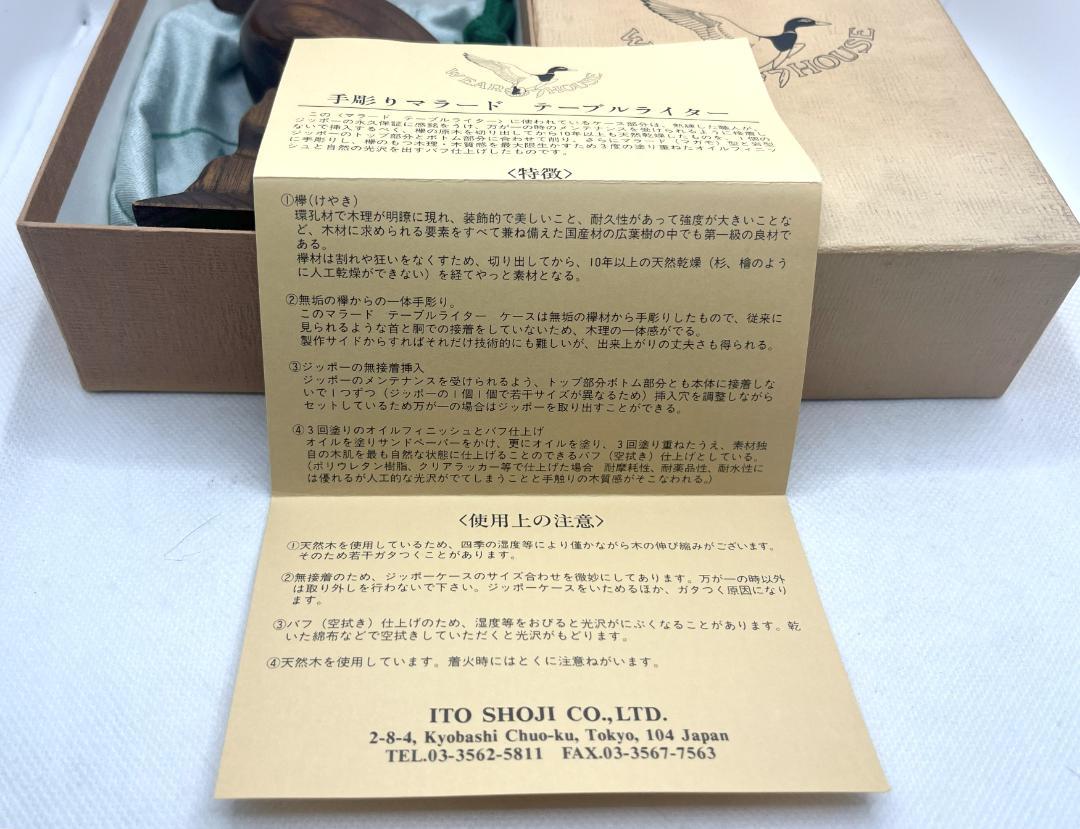 WEAR HOUSE
HOUSE
手彫りマラード テーブルライター
この〈マラード テーブルライター〉に使われているケース部分は、熟練した職人が、
ジッポーの永久保証に感銘をうけ、万が一の時のメンテナンスを受けられるように接着し
ないで挿入するべく、欅の原木を切り出してから10年以上も天然乾燥したものを、1個1個
ジッポーのトップ部分とボトム部分に合わせて削り、さらにマラード(マガモ)型と台型
に手彫りし、欅のもつ木理・木質感を最大限生かすため3度の塗り重ねたオイルフィニッ
シュと自然の光沢を出すバフ仕上げしたものです。
〈特徴〉
①欅(けやき)
環孔材で木理が明瞭に現れ、装飾的で美しいこと、耐久性があって強度が大きいことな
ど、木材に求められる要素をすべて兼ね備えた国産材の広葉樹の中でも第一級の良材で
ある。
欅材は割れや狂いをなくすため、切り出してから、10年以上の天然乾燥(杉、檜のよう
に人工乾燥ができない)を経てやっと素材となる。
②無垢の欅からの一体手彫り。
このマラード テーブルライター ケースは無垢の欅材から手彫りしたもので、従来に
見られるような首と胴での接着をしていないため、木理の一体感がでる。
製作サイドからすればそれだけ技術的にも難しいが、出来上がりの丈夫さも得られる。
③ジッポーの無接着挿入
ジッポーのメンテナンスを受けられるよう、トップ部分ボトム部分とも本体に接着しな
いで1つずつ(ジッポーの1個1個で若干サイズが異なるため)挿入穴を調整しながら
セットしているため万が一の場合はジッポーを取り出すことができる。
④3回塗りのオイルフィニッシュとバフ仕上げ
オイルを塗りサンドペーパーをかけ、更にオイルを塗り、3回塗り重ねたうえ、素材独
自の木肌を最も自然な状態に仕上げることのできるバフ(空拭き)仕上げとしている。
(ポリウレタン樹脂、クリアラッカー等で仕上げた場合 耐摩耗性、耐薬品性、耐水性に
は優れるが人工的な光沢がでてしまうことと手触りの木質感がそこなわれる。)
〈使用上の注意〉
①天然木を使用しているため、四季の湿度等により僅かながら木の伸び縮みがございます。
そのため若干ガタつくことがあります。
②無接着のため、ジッポーケースのサイズ合わせを微妙にしてあります。万が一の時以外
は取り外しを行わないで下さい。ジッポーケースをいためるほか、ガタつく原因になり
ます。
③バフ(空拭き)仕上げのため、湿度等をおびると光沢がにぶくなることがあります。乾
いた綿布などで空拭きしていただくと光沢がもどります。
④天然木を使用しています。着火時にはとくに注意ねがいます。
ITO SHOJI CO.,LTD.
2-8-4, Kyobashi Chuo-ku, Tokyo, 104 Japan
TEL.03-3562-5811 FAX.03-3567-7563